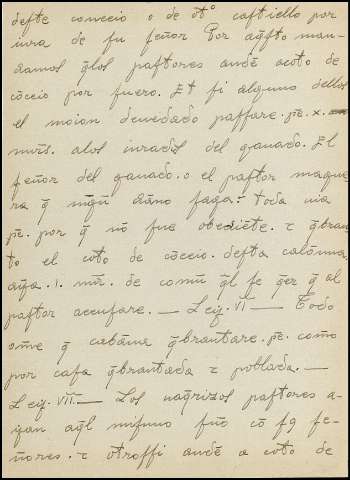 deste conceio o de ot° castiello por
iura de su señor Por aq̃sto man-
damos q̃los pastores andẽ acoto de
cõceio por fuero. Et si alguno dellos
el moion deuedado passare. pẽ. x.
mṝs. alos iurados del ganado. El
señor del ganado. o el pastor maque
ra q̃ nigũ dãno faga. toda uia
pẽ. por q̃ nõ fue obediẽte. ⁊ q̃bran
to el coto de cõceio. desta calõnna
aya. i. mṝ. de comũ q̃l se q̃er q̃ al
pastor accusare. — Ley. VI — Todo
om̃e q̃ cabãna q̃brantare. pẽ. como
por casa q̃brantada ⁊ poblada. —
Ley. VII. — Los nagrizos pastores a-
yan aq̃l mismo fuo cõ sꝯ se-
ñores. ⁊ otrossi andẽ a coto de